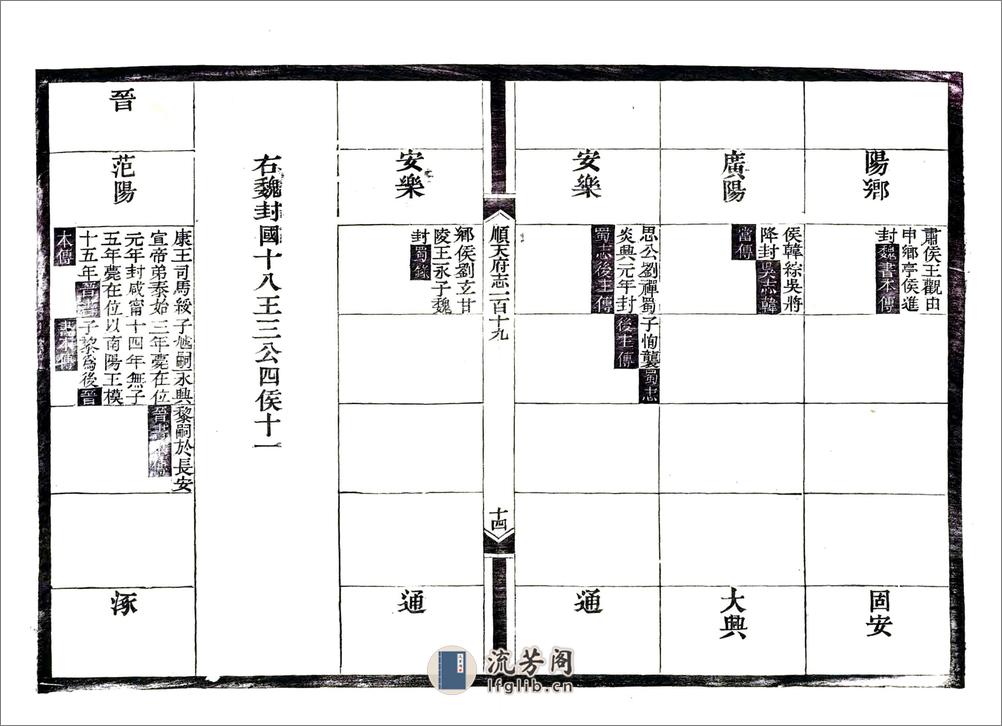 陽鄉
肅侯王觀由
申鄉亭侯進
封魏書本傳
固安
廣陽
侯韓綜吳將
降封吳志韓
當傳
大興
安樂
思公劉禪蜀
炎興元年封
蜀志後主傳
子恂襲蜀志
後主傳
通
順天府志一百十九
十四
安樂
鄉侯劉玄甘
陵王永子魏
封蜀錄
通
右魏封國十八王三公四侯十一
晉
范陽
康王司馬綏
宣帝弟泰始
元年封咸甯
五年薨在位
十五年晉書
本傳
子虓嗣永興
三年薨在位
十四年無子
以南陽王模
子黎爲後晉
書本傳
黎嗣於長安
晉書
涿
流芳阁
lfglib.cn